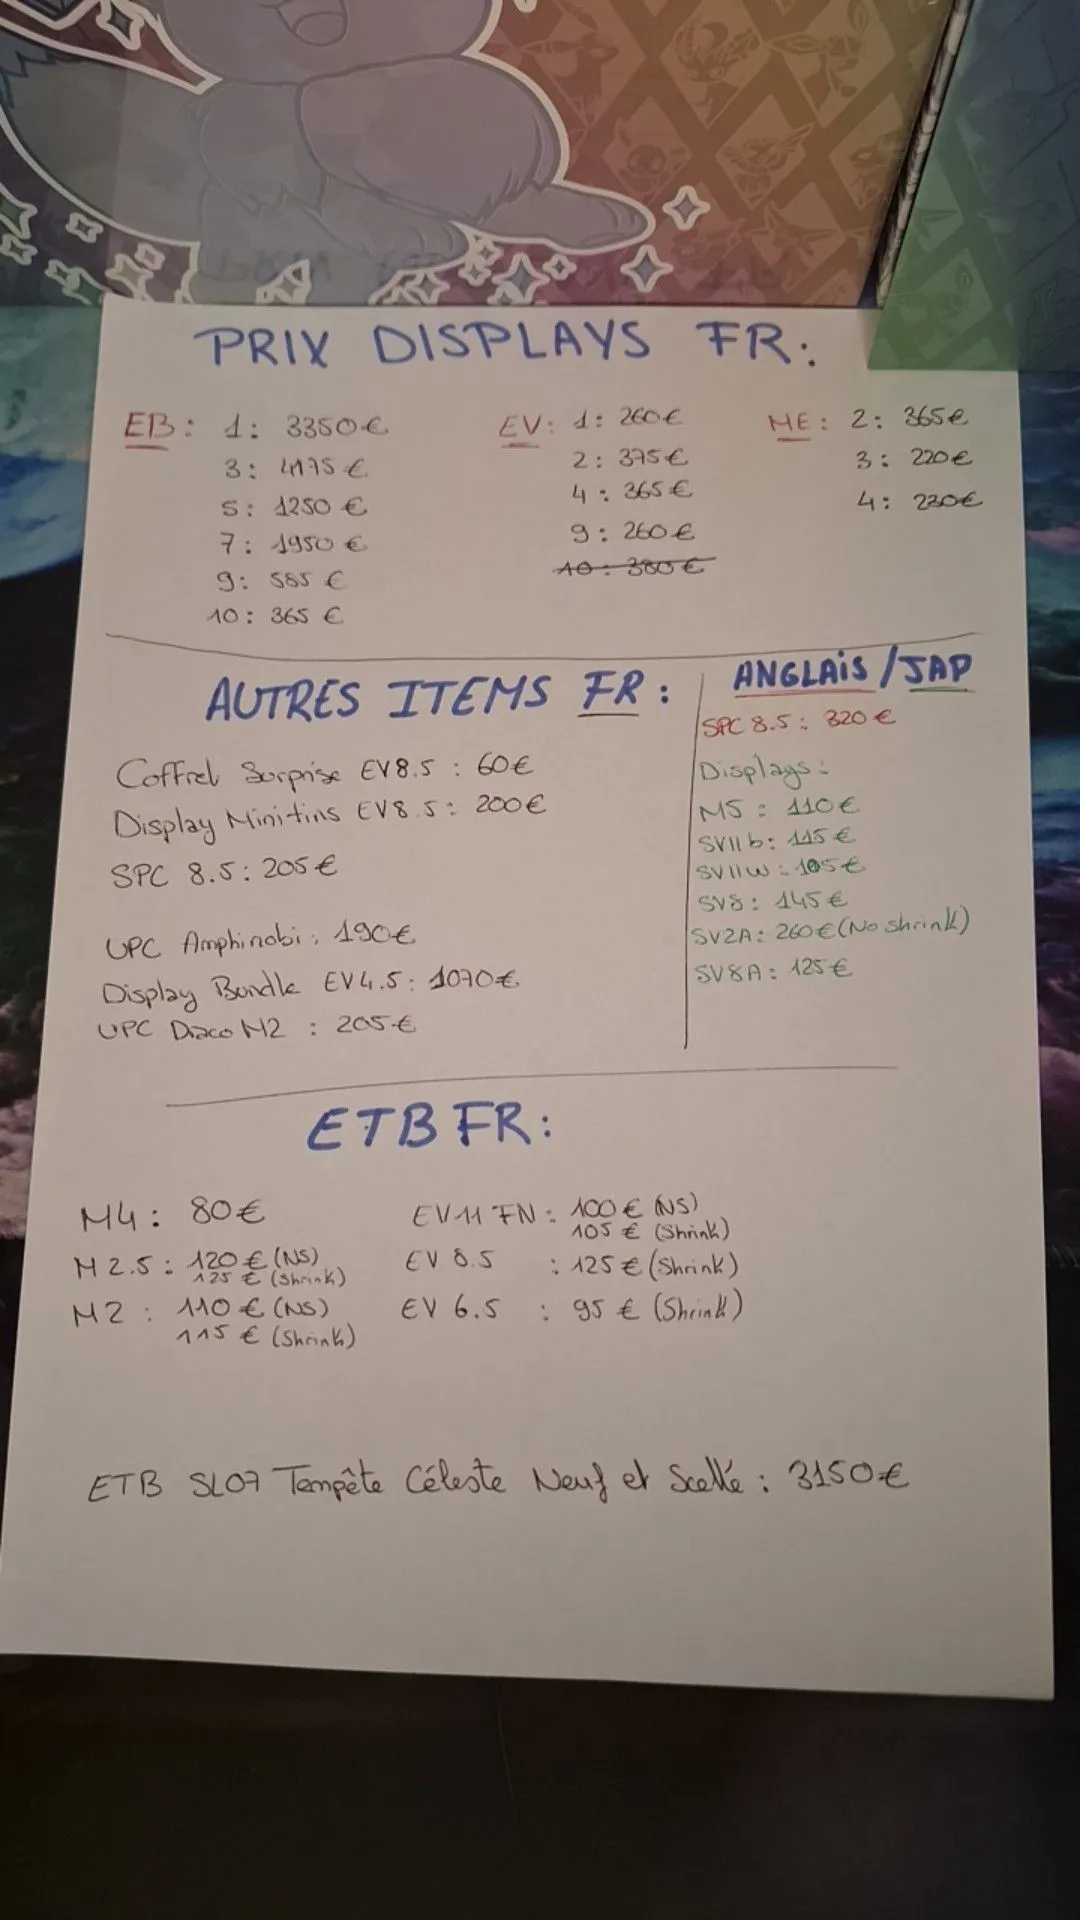 PRIX DISPLAYS FR:
EB: 1: 3350€
3: 4175 €
5: 1250 €
7: 1950 €
9: 585 €
10: 365 €
EV: 1: 260€
2: 375€
4: 365€
9: 260€
10: 380€
ME: 2: 365€
3: 220€
4: 230€
AUTRES ITEMS FR:
Coffret Surprise EV8.5 : 60€
Display Minitins EV8.5: 200€
SPC 8.5: 205€
UPC Amphinobi: 190€
Display Bundle EV4.5: 1070€
UPC Draco M2 : 205€
ANGLAIS / JAP
SPC 8.5: 320€
Displays:
M5 : 110€
SV11b: 115€
SV11W: 105€
SV8: 145€
SV2A: 260€ (No shrink)
SV8A: 125€
ETB FR:
M4: 80€
M2.5: 120€ (NS)
125 € (Shrink)
M2: 110€ (NS)
115 € (Shrink)
EV11 FN: 100€ (NS)
105 € (Shrink)
EV 8.5 : 125€ (Shrink)
EV 6.5 : 95 € (Shrink)
ETB SL07 Tempête Céleste Neuf et Scellé : 3150€